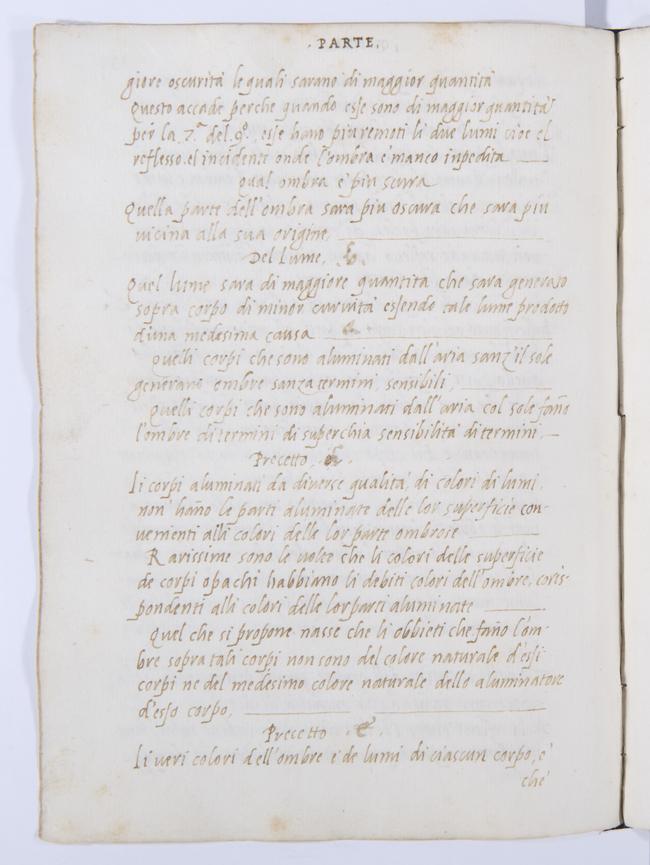 . PARTE.
giore oscurità le quali sarano di maggior quantità
Questo accade perche quando esse sono di maggior quantità
per la 7.ª del 9.º, esse hano piu remoti li due lumi cioe el
reflesso el incidente onde l'ombra e' manco inpedita
qual ombra e' piu scura
Quella parte dell'ombra sara piu oscura che sara piu
vicina alla sua origine,
Del Lume,
Quel lume sara di maggiore quantità che sara generato
sopra corpo di minor curvità essendo tale lume prodotto
d'una medesima causa
Quelli corpi che sono aluminati dall'aria sanz'il sole
generano ombre sanza termini sensibili,
Quelli corpi che sono aluminati dall'aria col sole fano
l'ombre di termini di superchia sensibilità di termini,
Precetto,
Li corpi aluminati da diverse qualità di colori di lumi
non hano le parti aluminate delle lor superficie con-
venienti alli colori delle lor parte ombrose
Rarissime sono le volte che li colori delle superficie
de corpi opachi habbiano li debiti colori dell'ombre, coris-
pondenti alli colori delle lor parti aluminate
Quel che si propone nasse che li obbieti che fano l'om-
bre sopra tali corpi non sono del colore naturale d'essi
corpi ne del medesimo colore naturale dello aluminatore
d'esso corpo,
Precetto
Li veri colori dell'ombre e de lumi di ciascun corpo, e'
che'